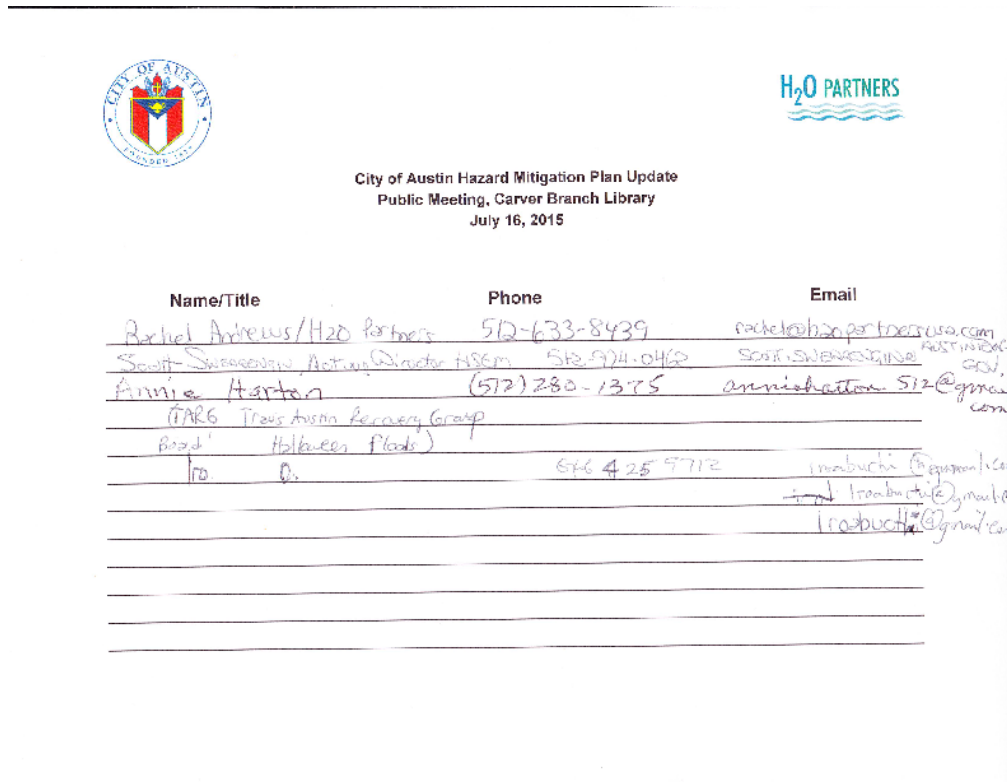 CITY OF AUSTIN
FOUNDED 1839
H2O PARTNERS
City of Austin Hazard Mitigation Plan Update
Public Meeting, Carver Branch Library
July 16, 2015
Name/Title Phone Email
Rachel Andrews/H2O Partners 512-633-8439 rachel@h2opartnersusa.com
Scott Swearengin, Acting Director HSEM 512-974-0462 SCOTT.SWEARENGIN@
AUSTINTEXAS.
GOV.
Annie Harton (512) 280-1375 annieharton512@gmai
com
(TARG Travis Austin Recovery Group
Board Halloween floods)
Iro O. 646 425 9712